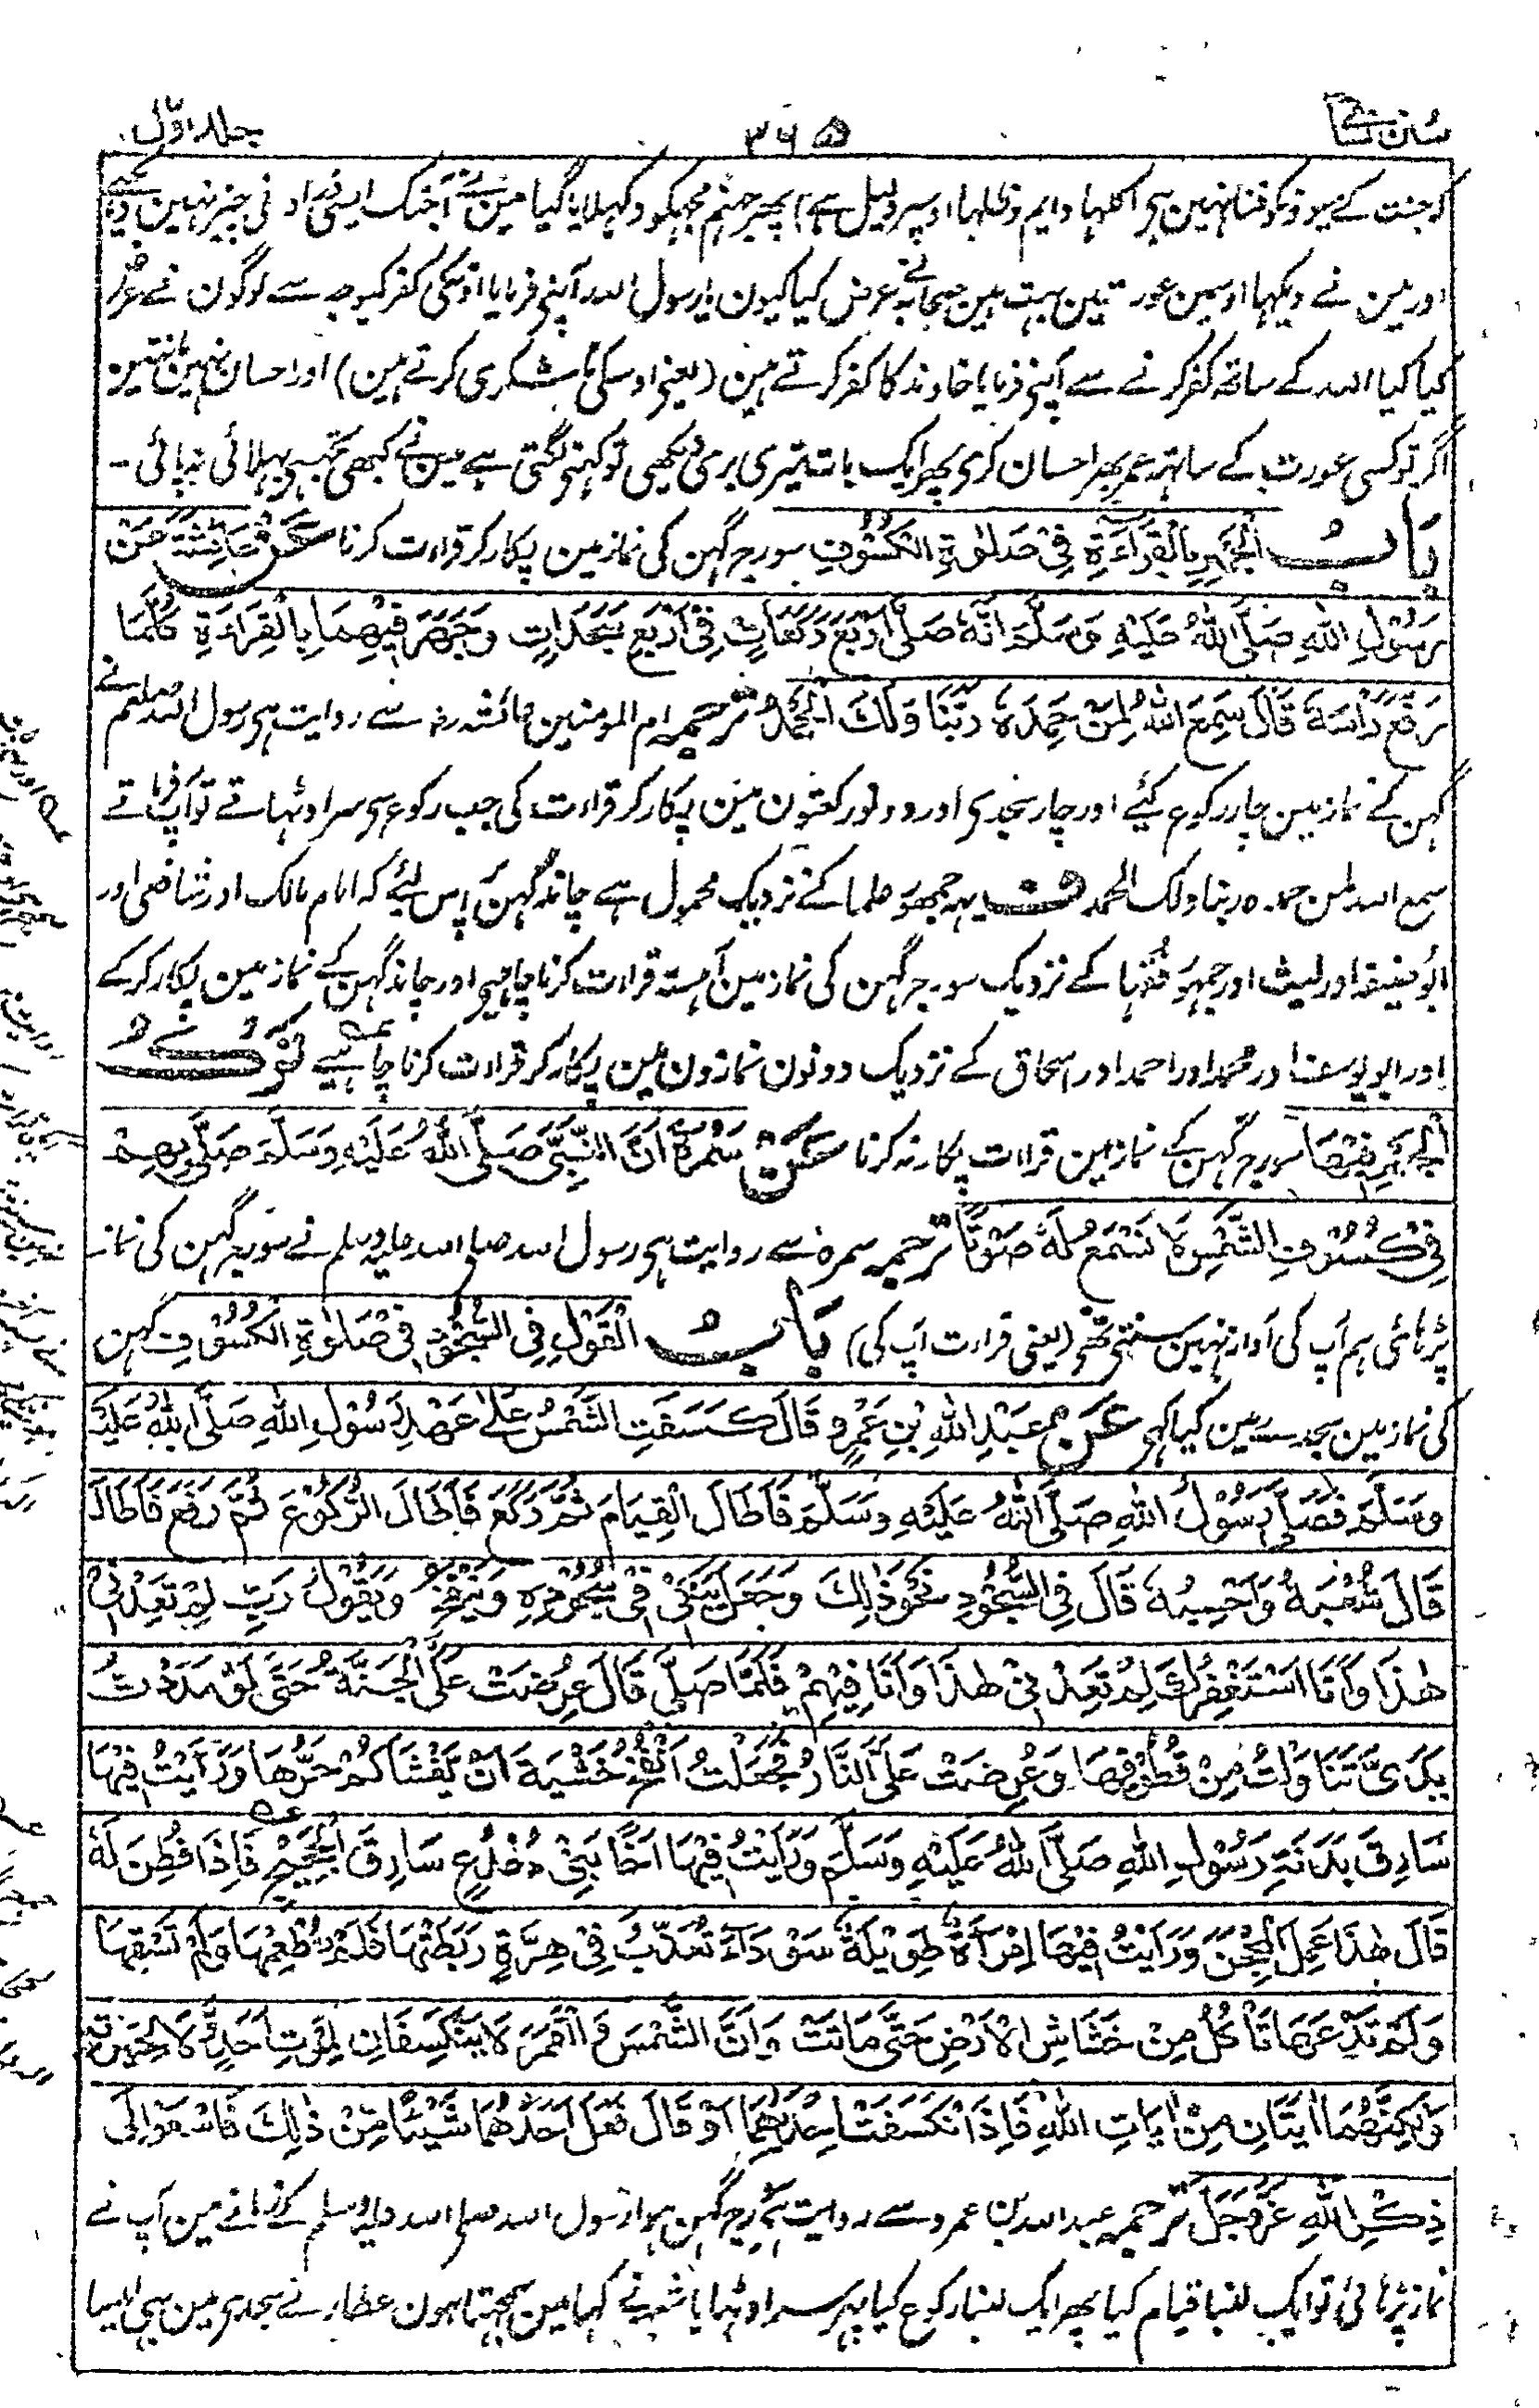 سنن نسائی ۳۶۵ جلد اوّل
کو جنت کے میوونکو فنا نہین ہی اکلہا دایم وظلہا اوسپر دلیل ہے) پھر جہنم مجہکو دکہلایا گیا مین نے آجتک ایسی ڈراونی چیز نہین دیکھی
اور مین نے دیکہا اوسمین عورتین بہت ہین صحابہ نے عرض کیا کیون یا رسول اللہ آپنی فرمایا اونکی کفر کیوجہ سے لوگون نے عرض
کیا کیا اللہ کے ساتھ کفر کرنے سے آپنی فرمایا خاوند کا کفر کرتے ہین (یعنی اوسکی ناشکری کرتے ہین) اور احسان نہین مانتین
اگر تو کسی عورت کے ساتہہ عمر بھر احسان کری پھر ایک بات تیری بری دیکھی تو کہنی لگتی ہے مین نے کبھی تجہسی بہلائی نہ پائی -
بَابُ الْجَهْرِ بِالْقِرَاءَةِ فِيْ صَلٰوةِ الْكُسُوْفِ سورج گہن کی نماز مین پکار کر قراءت کرنا عَنْ عَائِشَةَ عَنْ
رَسُوْلِ اللّٰهِ صَلَّى اللّٰهُ عَلَيْهِ وَسَلَّمَ اَنَّهٗ صَلّٰى اَرْبَعَ رَكَعَاتٍ فِيْ اَرْبَعِ سَجَدَاتٍ وَجَهَرَ فِيْهِمَا بِالْقِرَاءَةِ كُلَّمَا
رَفَعَ رَاْسَهٗ قَالَ سَمِعَ اللّٰهُ لِمَنْ حَمِدَهٗ رَبَّنَا وَلَكَ الْحَمْدُ ترجمہ ام المومنین عائشہ رضہ سے روایت ہی رسول اللہ صلعم نے
گہن کے نماز مین چار رکوع کیئے اور چار سجدی اور دونو رکعتون مین پکار کر قراءت کی جب رکوع سی سر اوٹہاتے تو آپ فرماتے
سمع اللہ لمن حمدہ ربنا ولک الحمد ف یہہ جمہور علما کے نزدیک محمول ہے چاند گہن پر اس لیئے کہ امام مالک اور شافعی اور
ابو حنیفہ اور لیث اور جمہور فقہا کے نزدیک سورج گہن کی نماز مین آہستہ قراءت کرنا چاہیی اور چاند گہن کے نماز مین پکار کر کے
اور ابو یوسف اور محمد اور احمد اور اسحاق کے نزدیک دونون نمازون مین پکار کر قراءت کرنا چاہیے تَرْكُ
الْجَهْرِ فِيْهَا سورج گہن کے نماز مین قراءت پکار نہ کرنا عَنْ سَمُرَةَ اَنَّ النَّبِيَّ صَلَّى اللّٰهُ عَلَيْهِ وَسَلَّمَ صَلّٰى بِهِمْ
فِيْ كُسُوْفِ الشَّمْسِ لَا نَسْمَعُ لَهٗ صَوْتًا ترجمہ سمرہ سے روایت ہی رسول اللہ صلے اللہ علیہ وسلم نے سورج گہن کی نماز
پڑہائی ہم آپ کی آواز نہین سنتی تھی (یعنی قراءت آپ کی) بَابُ الْقَوْلِ فِي السُّجُوْدِ فِيْ صَلٰوةِ الْكُسُوْفِ گہن
کی نماز مین سجدے مین کیا کہی عَنْ عَبْدِ اللّٰهِ بْنِ عَمْرٍو قَالَ كَسَفَتِ الشَّمْسُ عَلٰى عَهْدِ رَسُوْلِ اللّٰهِ صَلَّى اللّٰهُ عَلَيْهِ
وَسَلَّمَ فَصَلّٰى رَسُوْلُ اللّٰهِ صَلَّى اللّٰهُ عَلَيْهِ وَسَلَّمَ فَاَطَالَ الْقِيَامَ ثُمَّ رَكَعَ فَاَطَالَ الرُّكُوْعَ ثُمَّ رَفَعَ فَاَطَالَ
قَالَ شُعْبَةُ وَاَحْسِبُهٗ قَالَ فِي السُّجُوْدِ نَحْوَ ذٰلِكَ وَجَعَلَ يَبْكِيْ فِيْ سُجُوْدِهٖ وَيَنْفُخُ وَيَقُوْلُ رَبِّ لَمْ تَعِدْنِيْ
هٰذَا وَاَنَا اَسْتَغْفِرُكَ لَمْ تَعِدْنِيْ هٰذَا وَاَنَا فِيْهِمْ فَلَمَّا صَلّٰى قَالَ عُرِضَتْ عَلَيَّ الْجَنَّةُ حَتّٰى لَوْ مَدَدْتُ
يَدِيْ تَنَاوَلْتُ مِنْ قُطُوْفِهَا وَعُرِضَتْ عَلَيَّ النَّارُ فَجَعَلْتُ اَنْفُخُ خَشْيَةَ اَنْ يَّغْشَاكُمْ حَرُّهَا وَرَاَيْتُ فِيْهَا
سَارِقَ بَدَنَةِ رَسُوْلِ اللّٰهِ صَلَّى اللّٰهُ عَلَيْهِ وَسَلَّمَ وَرَاَيْتُ فِيْهَا اَخَا بَنِيْ دُعْدُعٍ سَارِقَ الْحَجِيْجِ فَاِذَا فُطِنَ لَهٗ
قَالَ هٰذَا عَمَلُ الْمِحْجَنِ وَرَاَيْتُ فِيْهَا اِمْرَاَةً طَوِيْلَةً سَوْدَاءَ تُعَذَّبُ فِيْ هِرَّةٍ رَبَطَتْهَا فَلَمْ تُطْعِمْهَا وَلَمْ تَسْقِهَا
وَلَمْ تَدَعْهَا تَاْكُلُ مِنْ خَشَاشِ الْاَرْضِ حَتّٰى مَاتَتْ وَاِنَّ الشَّمْسَ وَالْقَمَرَ لَا يَنْكَسِفَانِ لِمَوْتِ اَحَدٍ وَّلَا لِحَيٰوتِهٖ
وَلٰكِنَّهُمَا اٰيَتَانِ مِنْ اٰيَاتِ اللّٰهِ فَاِذَا انْكَسَفَتْ اِحْدٰهُمَا اَوْ قَالَ فَعَلَ اَحَدُهُمَا شَيْئًا مِّنْ ذٰلِكَ فَاسْعَوْا اِلٰى
ذِكْرِ اللّٰهِ عَزَّ وَجَلَّ ترجمہ عبد اللہ بن عمرو سے روایت ہی سورج گہن ہوا رسول اللہ صلے اللہ علیہ وسلم کے زمانے مین آپ نے
نماز پڑہائی تو ایک لنبا قیام کیا پھر ایک لنبا رکوع کیا پہر سر اوٹہایا شعبہ نے کہا مین سمجہتا ہون عطار نے سجدی مین بہی ایسا